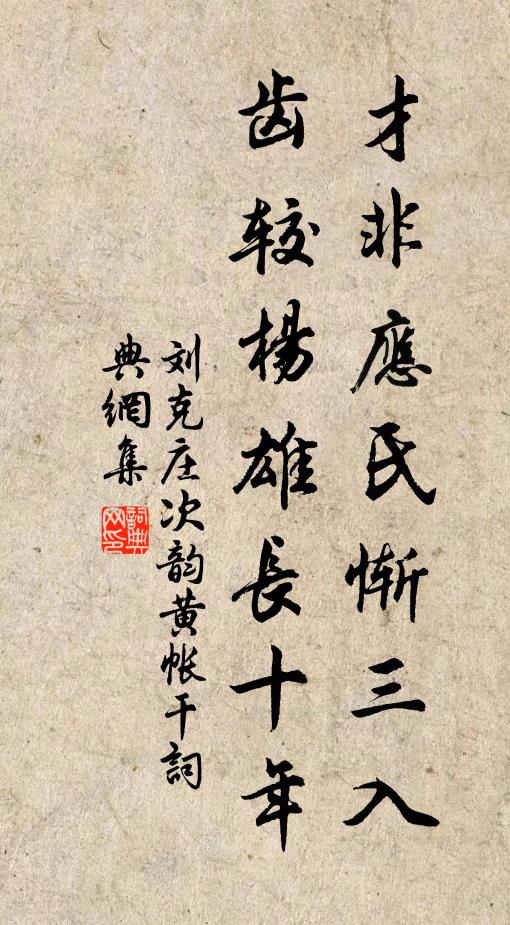 才非應氏慚三入
齿较楊雄長十年
刘克庄次韵黄帐干詞
典網集
詞典网印